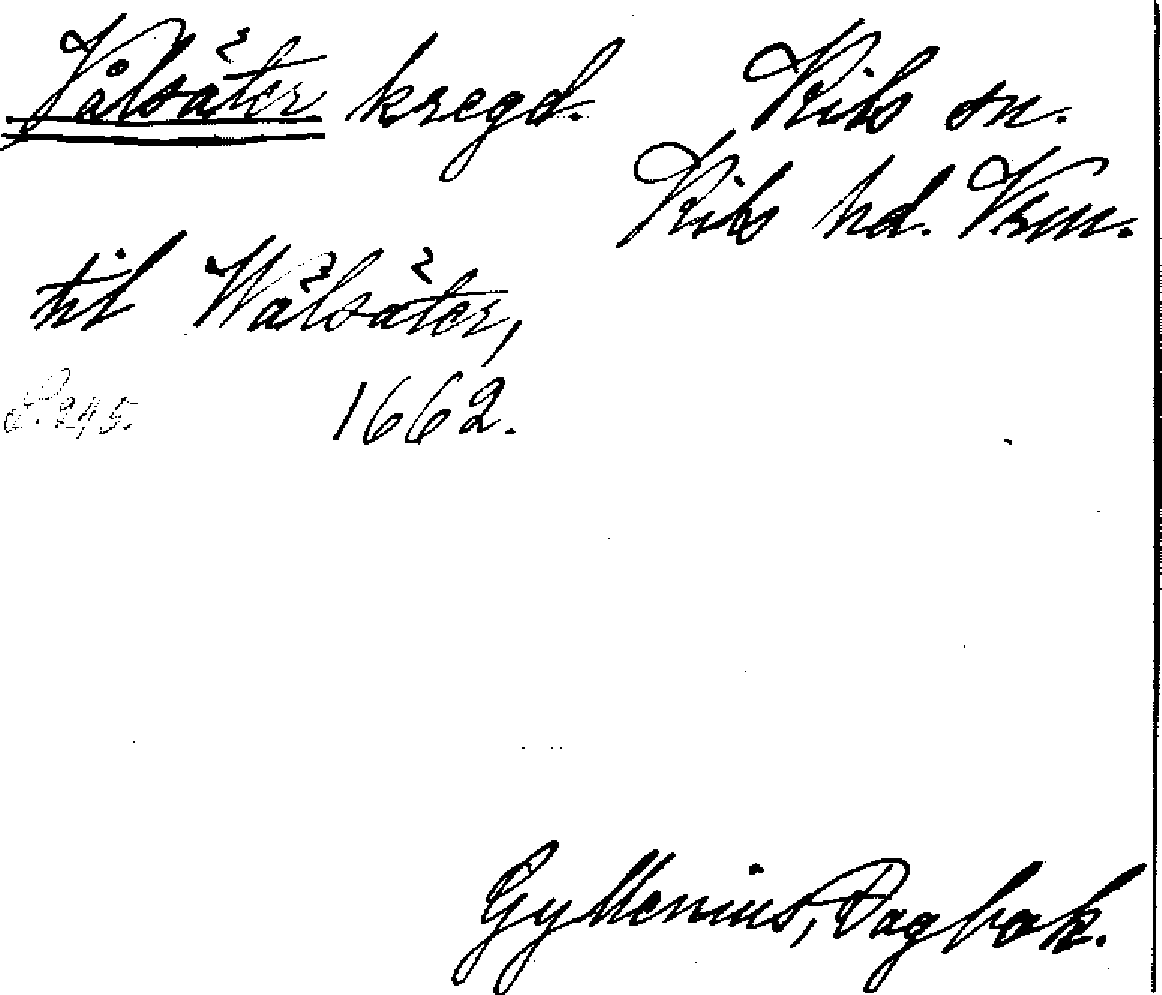 Vålsäter kregd. Kils sn.
Kils hd. Vrm.
till Wålsäter,
S. 245. 1662.
Gyllenius, Dagbok.